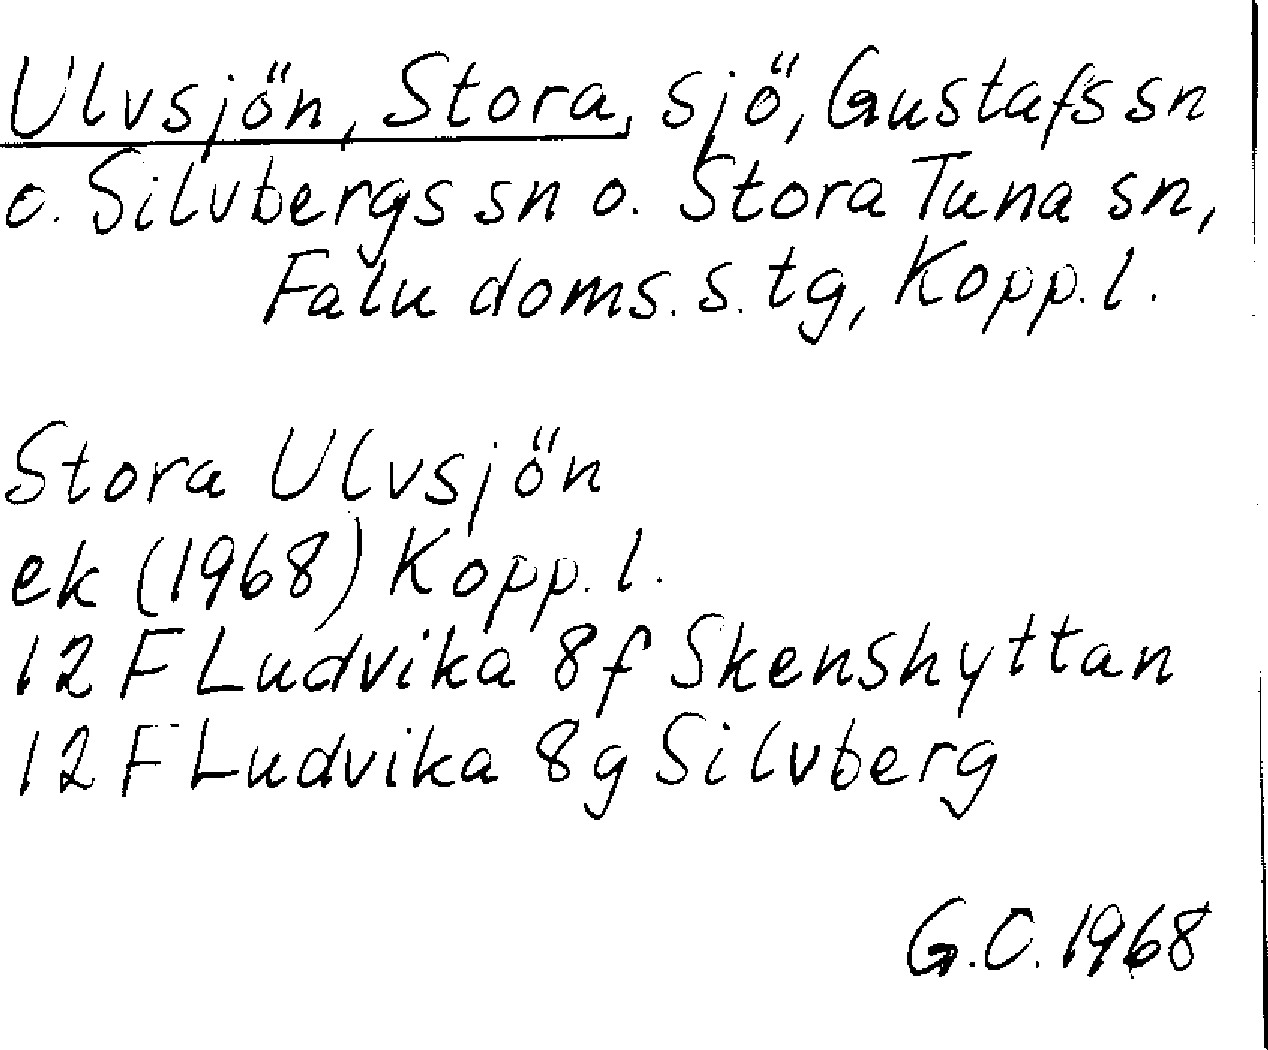 Ulvsjön, Stora, sjö, Gustafs sn
o. Silvbergs sn o. Stora Tuna sn,
Falu doms. s. tg, Kopp. l.
Stora Ulvsjön
ek (1968) Kopp. l.
12 F Ludvika 8f Skenshyttan
12 F Ludvika 8g Silvberg
G.C. 1968